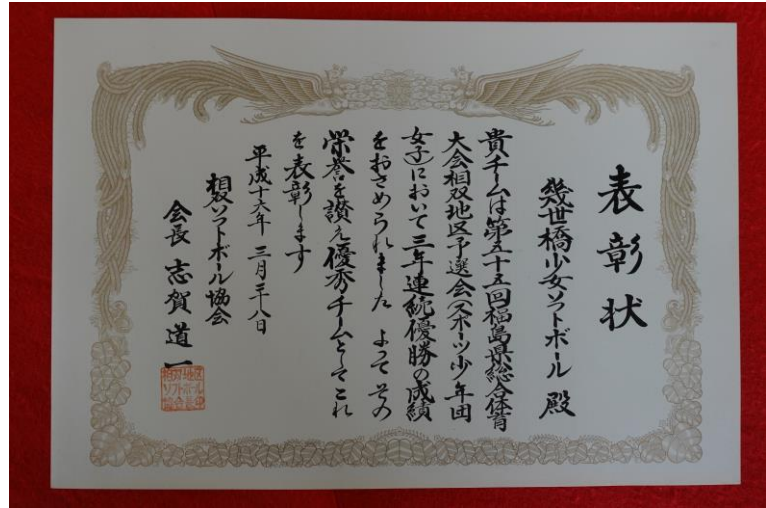 表彰状
幾世橋少女ソフトボール 殿
貴チームは第五十五回福島県総合体育
大会相双地区予選会(スポーツ少年団
女子)において三年連続優勝の成績
をおさめられました よってその
栄誉を讃え優秀チームとしてこれ
を表彰します
平成十六年 三月二十八日
相双ソフトボール協会
会長 志賀道一